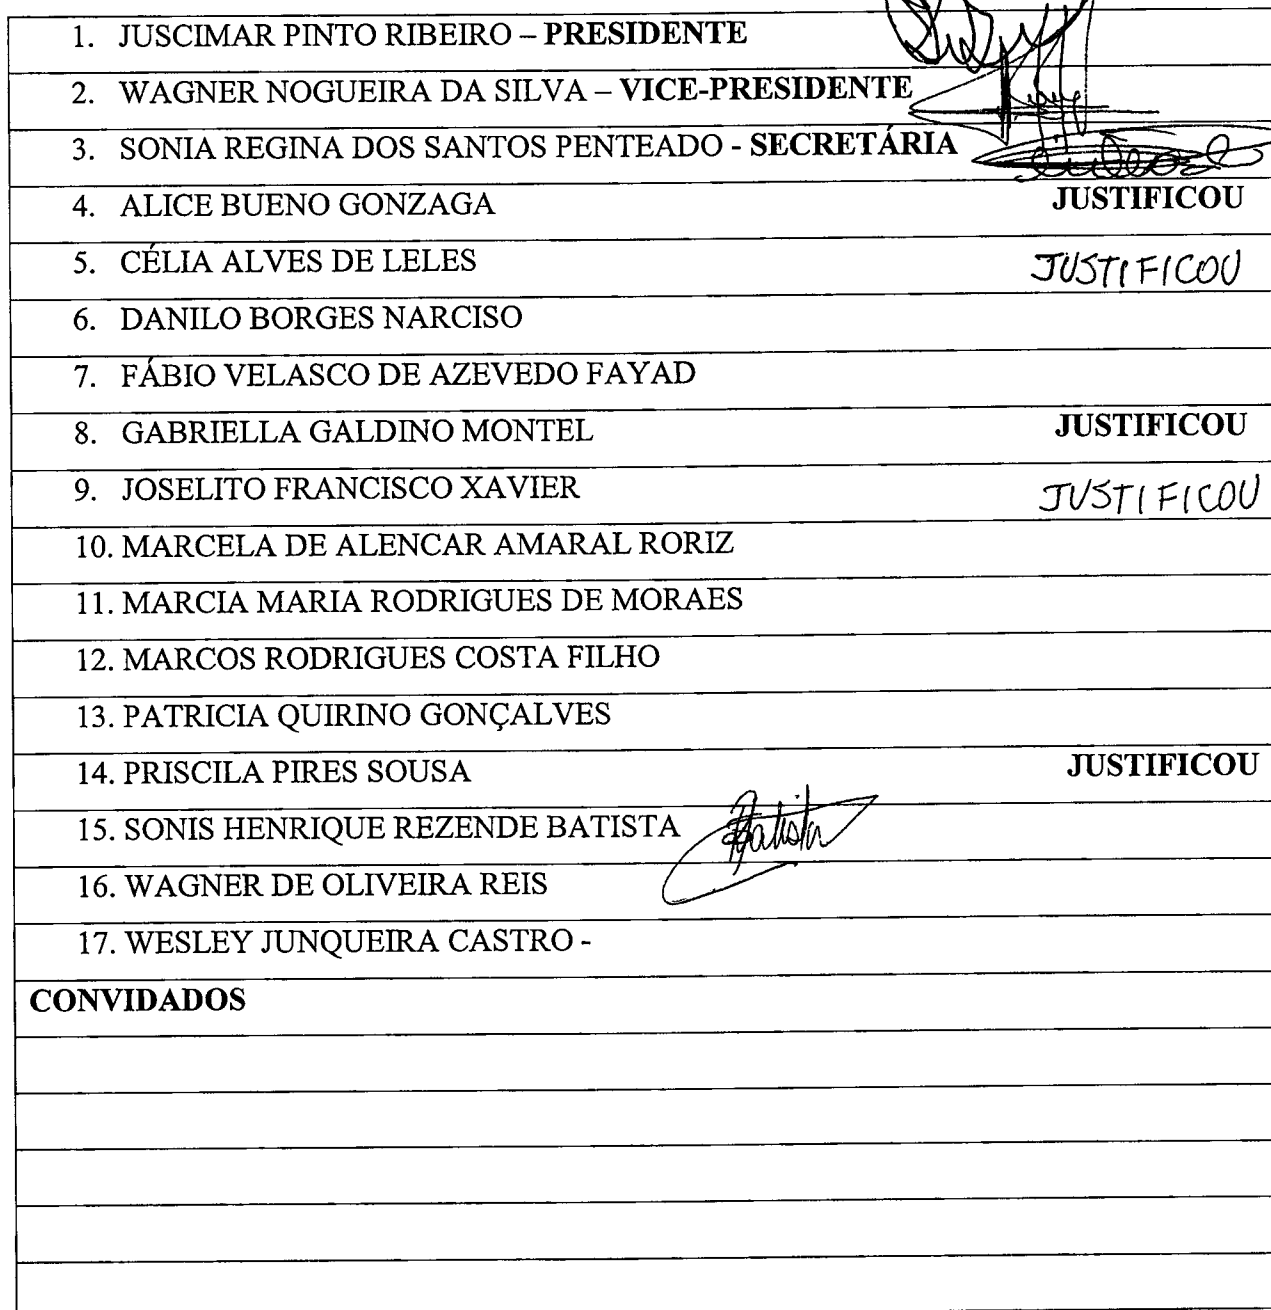 1. JUSCIMAR PINTO RIBEIRO – PRESIDENTE
2. WAGNER NOGUEIRA DA SILVA – VICE-PRESIDENTE
3. SONIA REGINA DOS SANTOS PENTEADO - SECRETÁRIA
4. ALICE BUENO GONZAGA JUSTIFICOU
5. CÉLIA ALVES DE LELES JUSTIFICOU
6. DANILO BORGES NARCISO
7. FÁBIO VELASCO DE AZEVEDO FAYAD
8. GABRIELLA GALDINO MONTEL JUSTIFICOU
9. JOSELITO FRANCISCO XAVIER JUSTIFICOU
10. MARCELA DE ALENCAR AMARAL RORIZ
11. MARCIA MARIA RODRIGUES DE MORAES
12. MARCOS RODRIGUES COSTA FILHO
13. PATRICIA QUIRINO GONÇALVES
14. PRISCILA PIRES SOUSA JUSTIFICOU
15. SONIS HENRIQUE REZENDE BATISTA Batista
16. WAGNER DE OLIVEIRA REIS
17. WESLEY JUNQUEIRA CASTRO -
CONVIDADOS